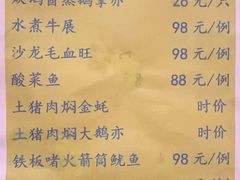 水煮牛展 98 元/例
沙龙毛血旺 98 元/例
酸菜鱼 88 元/例
土猪肉焖金蚝 时价
土猪肉焖大鹅亦 时价
铁板啫火箭筒鱿鱼 98 元/例